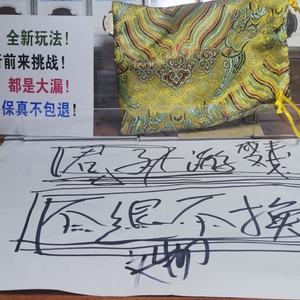 全新玩法！
前来挑战！
都是大漏！
保真不包退！
君子游戏
不退不换